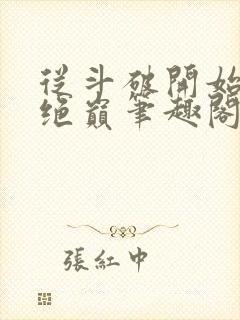 從斗破開始
絕巔筆趣閣
張紅中